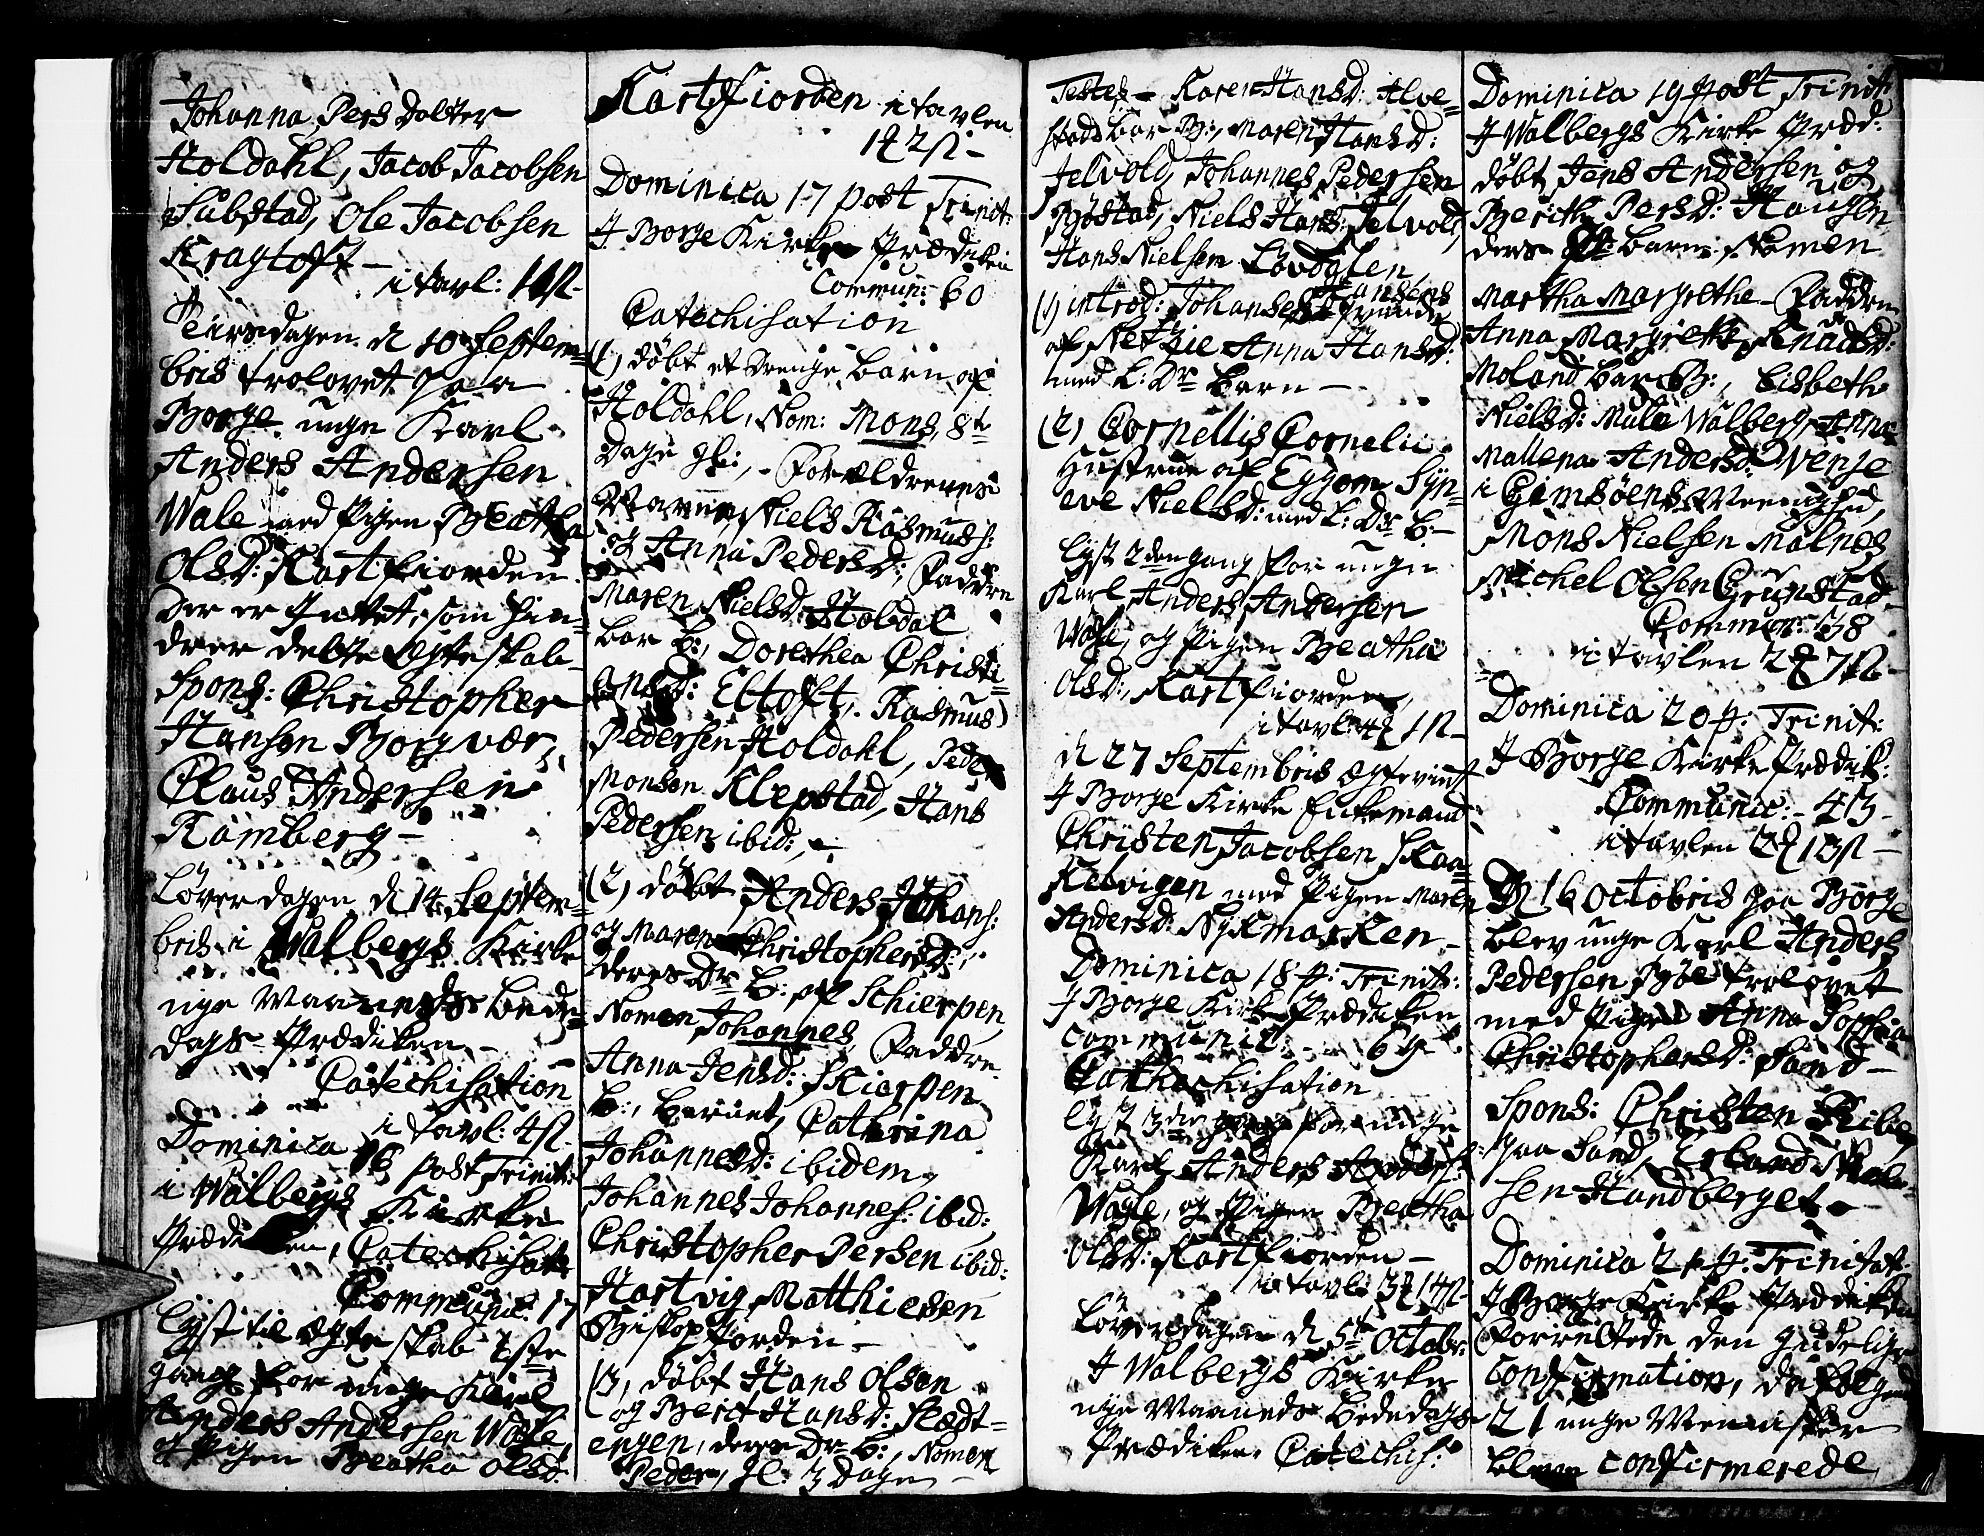 Johanna Persdotter
Holdahl, Jacob Jacobsen
Substad, Ole Jacobsen
Kragtoft –
i tavl: 10 ß
Tiirsdagen d 10 Septem=
bris trolovet paa
Borge unge Karl
Anders Andersen
Wale med Pigen Beatha
Olsd: Kartfiorden
der er Intet, som hin=
drer dette Ægteskab
Spons: Christopher
Hansen Borgvær,
Claus Andersen
Ramberg –
Løverdagen d 14 Septem=
bris i Walbergs Kirke
nye Maaneds Bede=
dags Prædiken –
Catechisation
i tavl: 4 ß
Dominica 16 post Trinit:
i Walbergs Kirke
Prædiken, Catechisat:
Communic: 17
Lyst til Ægteskab 1ste
gang for unge Karl
Anders Andersen Wale
og Pigen Beatha Olsd:
Kartfiorden i tavlen
2 ß –
Dominica 17 post Trinit:
J Borge Kirke Prædiken
Commun: 60
Catechisation
(1) døbt et Drenge Barn af
Holdahl, Nom: Mons, 8te
Dage gl:, Forældrenes
Navne, Niels Rasmuss:
og Anna Pedersd:, Faddre
Maren Nielsd: Holdal
bar B:, Dorethea Christi=
ansd: Eltoft, Rasmus
Pedersen Holdahl, Peder
Monsen Klepstad, Hans
Pedersen ibid:, –
(2) døbt Anders Johans:
og Maren Christophersd:
deres Dr B: af Schierpen,
Nomen Johannes, Faddre
Anna Jensd: Skierpen
B:, baaret, Cathrina
Johannesd: ibidem,
Johannes Johannes: ibid:
Christopher Persen ibid:
Hartvig Matthiesen
Bispfiorden –
(3) døbt Hans Olsen
og Berit Hansd: Slædt=
engen, deres Dr B:, Nomen
Peder, gl: 3 Dage –
Testes – Karen Hansd: Alve=
stad bar B:, Maren Hansd:
Jelvold, Johannes Pedersen
Bøstad, Niels Hans: Jelvold,
Hans Nielsen Lovdalen,
(1) introd: Johannes Hansens
af Nethie Anna Hansd:
med l: Dr Barn –
(2) Cornellis Corneli
Hustrue af Eggom Syn=
eve Nielsd: med l: Dr B: –
Lyst 2den gang for unge
Karl Anders Andersen
Wale, og Pigen Beatha
Olsd:, Kartfiorden,
i tavl: 4 1 ß –
d 27 Septembris Ægteviet
J Borge Kirke Enkemand
Christen Jacobsen Skaa=
Kelvigen med Pigen Maren
Andersd: Nykmarken –
Dominica 18 p: Trinit:
J Borge Kirke Prædiken
Communic: 69
Cathechisation
Lyst 3die gang for unge
Karl Anders Anders:
Wagle, og Pigen Beatha
Olsd: Kartfiorden –
i tavl: 3 14 ß –
Løverdagen d 5te Octobr:
J Walbergs Kirke
nye Maaneds Bededags
Prædiken Catechis:
Dominica 19 post Trinit:
J Walbergs Kirke Præd:
døbt Jens Andersen og
Berith Persd: Haugen
deres Barn, Nomen
Martha Margrethe – Faddre
Anna Margrethe Knudsd:
Moland bar B:, Lisbeth
Nielsd: Mula Walberg, Anna
Mallena Andersd: Wenje
i Gimsøens Meenighed,
Mons Nielsen Malnes
Michel Olsen Grunstad
Commun: 38
i tavlen 2 7 ß –
Dominica 20 p: Trinit:
J Borge Kirke Prædik:
Communic: – 43 –
i tavlen 2 13 ß –
d 16 Octobris paa Borge
blev unge Karl Anders
Pedersen Bøe trolovet
med Pigen Anna Sophia
Christophersd: Sand –
Spons: Christen Riber
paa Sand, Erland
sen Handberget –
Dominica 21 p: Trinitat:
J Borge Kirke Prædiken
Forrettede den Gudelige
Confirmation, da følgende
21 unge Mennisker
bleve confirmerede